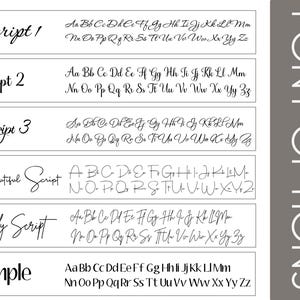 Script 1
Aa Bb Cc Dd Ee Ff Gg Hh Ii Jj Kk Ll Mm
Nn Oo Pp Qq Rr Ss Tt Uu Vv Ww Xx Yy Zz
ipt 2
Aa Bb Cc Dd Ee Ff Gg Hh Ii Jj Kk Ll Mm
Nn Oo Pp Qq Rr Ss Tt Uu Vv Ww Xx Yy Zz
ipt 3
Aa Bb Cc Dd Ee Ff Gg Hh Ii Jj Kk Ll Mm
Nn Oo Pp Qq Rr Ss Tt Uu Vv Ww Xx Yy Zz
utiful Script
A B C D E F G H I J K L M
N O P Q R S T U V W X Y Z
y Script
Aa Bb Cc Dd Ee Ff Gg Hh Ii Jj Kk Ll Mm
Nn Oo Pp Qq Rr Ss Tt Uu Vv Ww Xx Yy Zz
mple
Aa Bb Cc Dd Ee Ff Gg Hh Ii Jj Kk Ll Mm
Nn Oo Pp Qq Rr Ss Tt Uu Vv Ww Xx Yy Zz
FONT OPTIONS